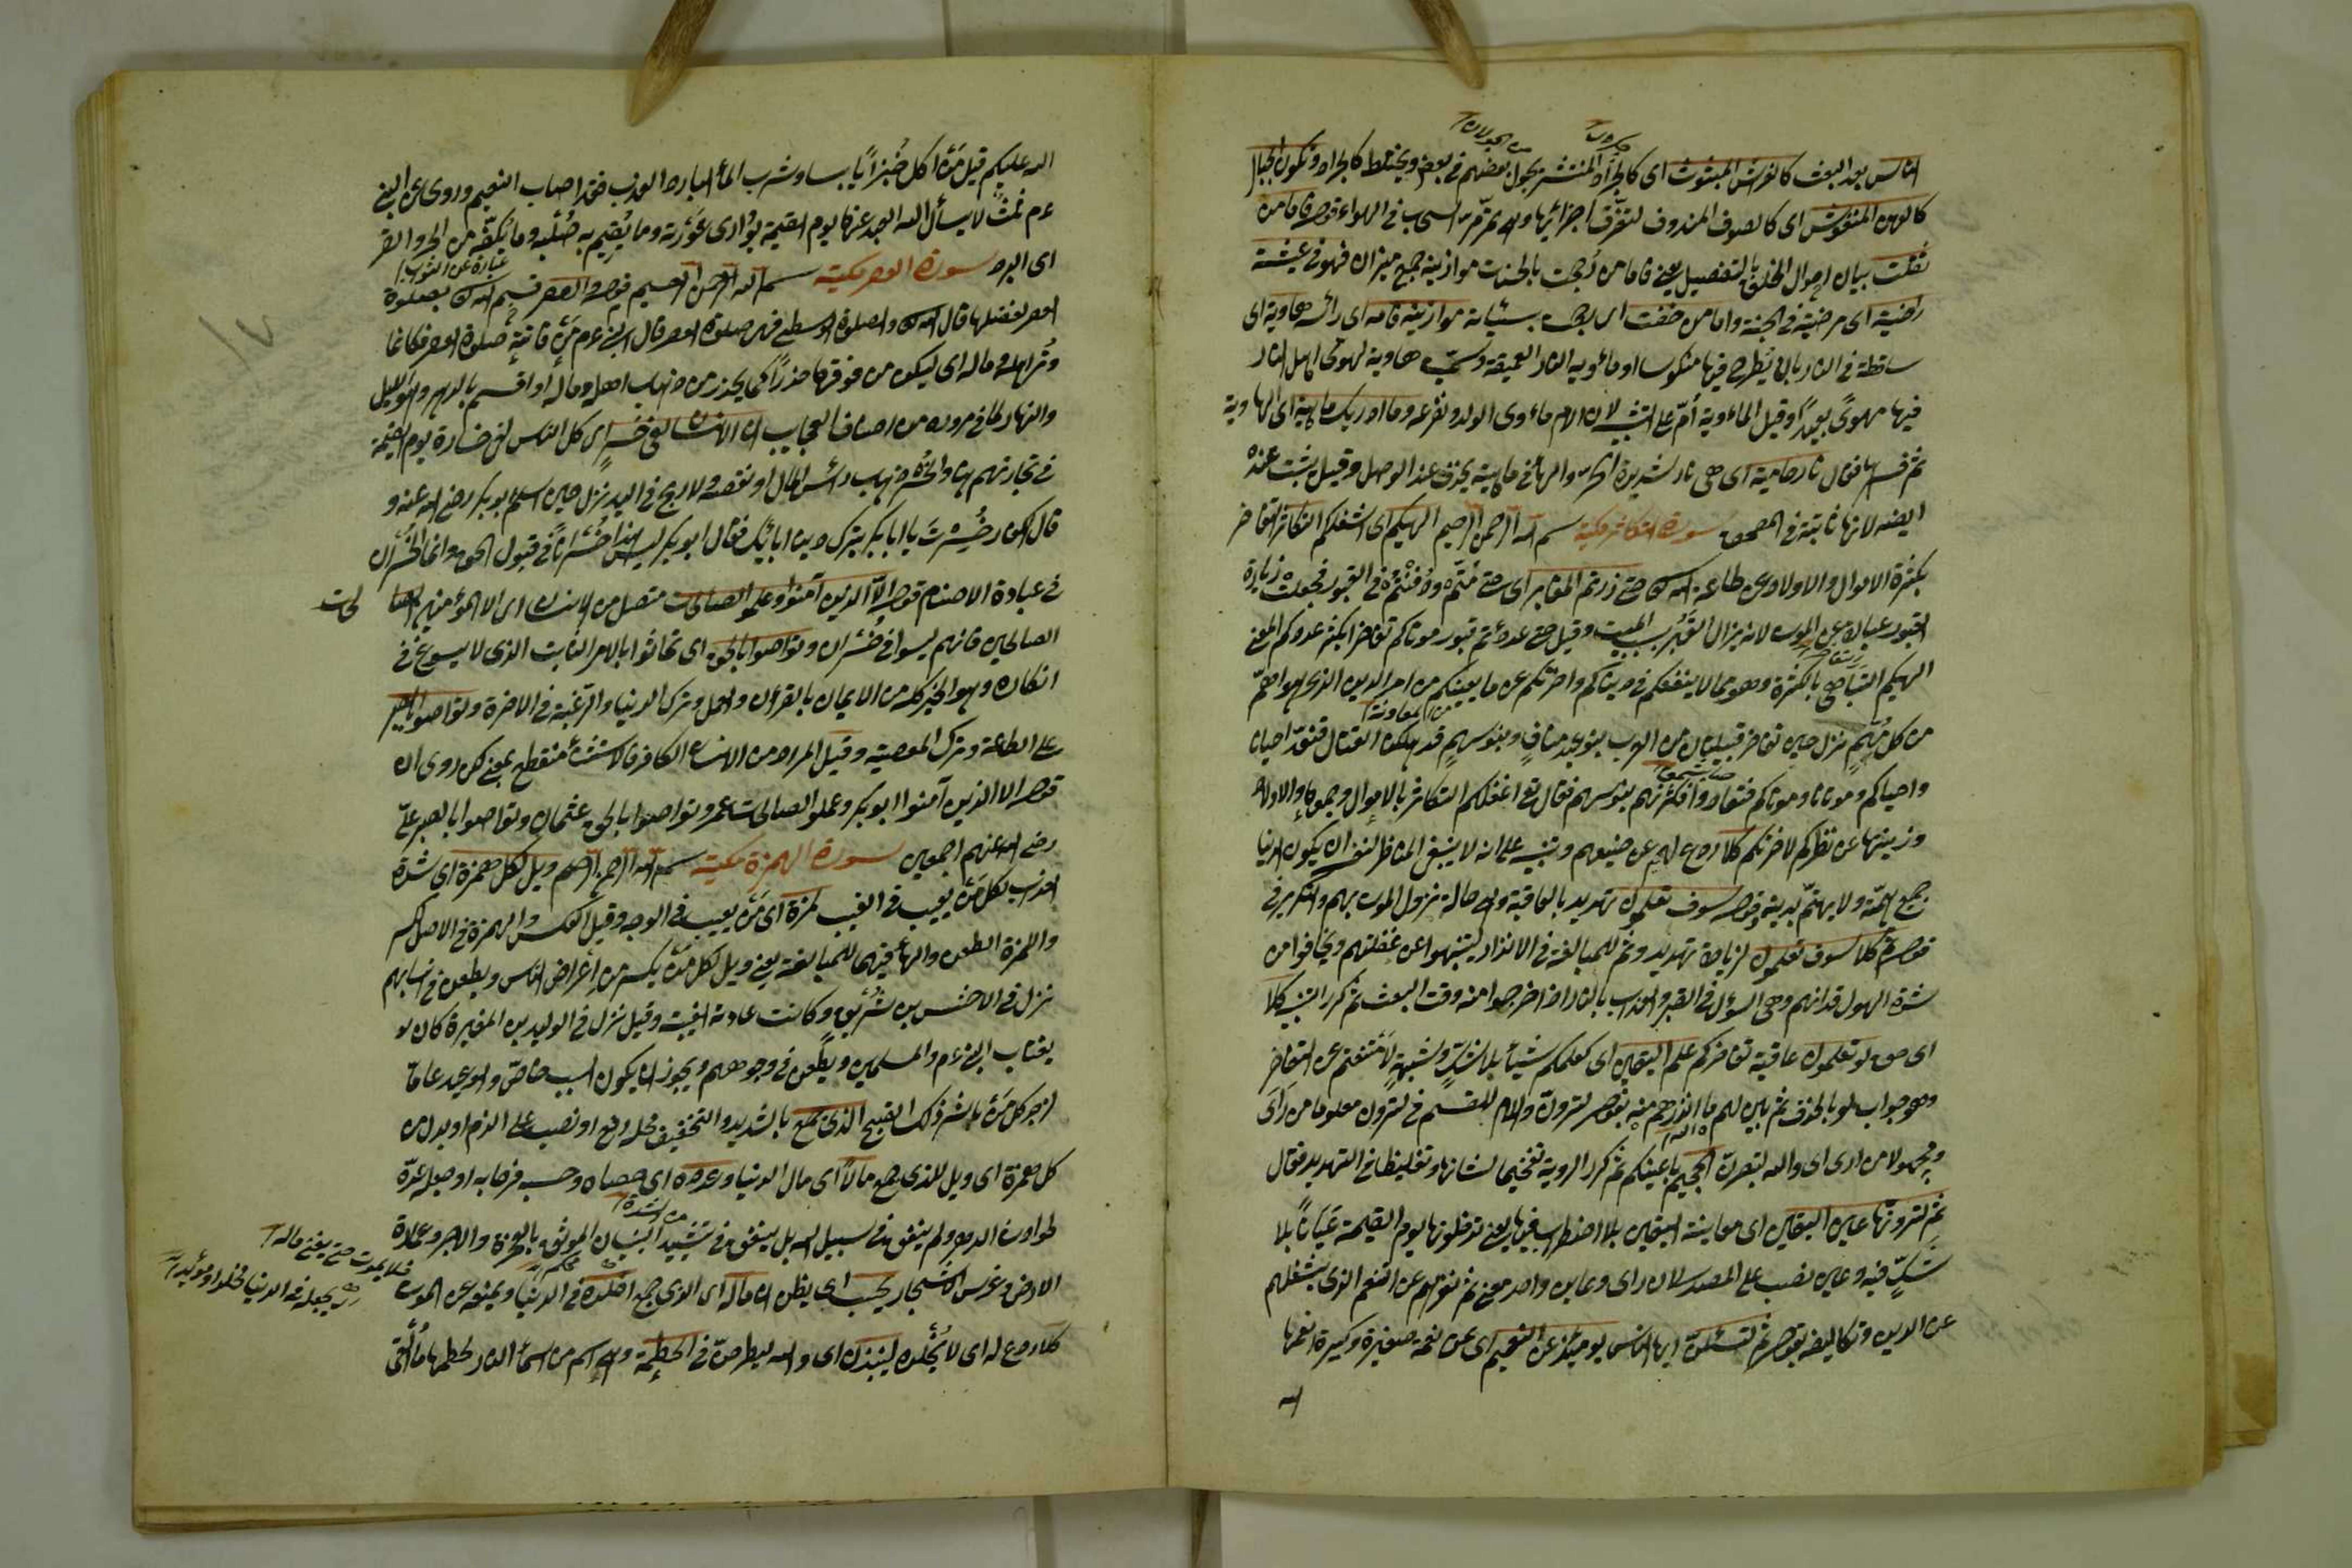 الناس بعد البعث كالفراش المبثوث اى كالجراد المنتشر يجول بعضهم فى بعض ويختلط كالجراد وتكون الجبال
كالعهن المنفوش اى كالصوف المندوف لتفرّق اجزائها وهى تمرّ مرّ السحاب فى الهواء قوله فاما من
ثقلت بيان احوال الخلق بالتفصيل يعنى فاما من رُجحت بالحسنات موازينه جمع ميزان فهو فى عيشة
راضية اى مرضية فى الجنة واما من خفت اى رجحت بسيئاته موازينه فامه اى رأسه هاوية اى
ساقطة فى النار بان يُطرح فيها منكوسا او مأويه النار العميقة وتسمّى هاوية لهوىّ اهل النار
فيها مهوىً بعيدًا وقيل المأوية اُمّ على التشبيه لان الام مأوى الولد ومفزعه وما ادريك ماهيه اى الهاوية
ثم فسرها فقال نار حامية اى هى نار شديدة الحرّ والهاء فى ماهيه يحذف عند الوصل وقيل يثبت عنده
ايضا لانها ثابتة فى المصحف سورة التكاثر مكية بسم الله الرحمن الرحيم الهيكم اى اشغلكم التكاثر التفاخر
بكثرة الاموال والاولاد عن طاعة الله حتى زرتم المقابر اى حتى مُتّم ودُفنتم فى القبور فجعلت زيارة
القبور عبارة عن الموت لانه يزال القبر بسبب الميت وقيل حتى عددتم قبور موتاكم تفاخرا بكثر عددكم المعنى
الهيكم التباهى بالكثرة وهو مما لا ينفعكم فى دينكم واخرتكم عن ما يعنيكم من امر الدين الذى هو اهمّ
من كل مُهمٍّ نزل حين تفاخر قبيلتان من العرب بنو عبد منافٍ وبنو سهمٍ قد اهلكه القتال فنعدّ احيانا
واحياكم وموتانا وموتاكم فتعادوا فكثرتهم بنو سهم فقال تع اغفلكم التكاثر بالاموال وجموع الاولاد
وزينتها عن نظركم لاخرتكم كلا ردع لهم عن صنيعهم وتنبيه على انه لا ينبغى الناظر لنفسه ان يكون الدنيا
جميع همّته ولا يهتمّ بدينه وقوله سوف تعلمون تهديد بالعاقبة وهى حالة نزول الموت بهم والتكرير فى
قوله ثم كلا سوف تعلمون لزيادة تهديد وثم للمبالغة فى الانذار ليتنبهوا عن غفلتهم ويخافوا من
شدة الهول قدامهم وهى السؤال فى القبر والعذاب بالنار اذا خرجوا منه وقت البعث ثم كرر التنبيه كلا
اى حق لو تعلمون عاقبة تفاخركم علم اليقين اى كعلمكم شيأ بلا شكٍّ وشبهةٍ لامتنعتم عن التفاخر
وهو جواب لو بالحذف ثم بين لهم ما انذرهم منه بقوله لترونّ واللام للقسم فى لترون معلوما من رَأَى
ومجهولا من ارى اى والله لتبصرنّ الجحيم باعينكم ثم كرر الروية تفخيما لشانها وتغليظا فى التهديد فقال
ثم لترونها عين اليقين اى معاينة اليقين بلا اضطراب فيها يعنى تدخلونها يوم القيمة عَيَانًا بلا
شكٍّ فيه وعين نصب على المصدر لان راى وعاين واحد معنى ثم نفّرهم عن التنعم الذى يشغلهم
عن الدين وتكاليفه بقوله ثم لتسئلنّ ايها الناس يومئذ عن النعيم اى عن نعمة صغيرة وكبيرة انعمها
الله
الله عليكم قيل مَن اكل خُبزًا يابسا وشرب الماء البارد العذب فقد اصاب النعيم وروى عن النبى
عم ثلث لا يسأل الله العبد عنها يوم القيمة يُوارى عَورَته وما يُقيم به صُلبه وما يكفّه من الحر والقر
اى البرد سورة العصر مكية بسم الله الرحمن الرحيم قوله والعصر قسم الله بصلوة
العصر لفضلها قال الله والصلوة الوسطى فهى صلوة العصر قال النبى عم من فاتته صلوة العصر فكانما
وُتر اهله وماله اى ليكون من فوتها حذرًا كما يحذر من ذهاب اهله وماله او اقسم بالدهر وهو الليل
والنهار لما فى مروره من اصناف العجايب ان الانسان لفى خسر اى كل الناس لفى خسارة يوم القيمة
فى تجارتهم والخسر ذهاب رأس المال او نقصه ولا ربح فى اليد نزل حين اسلم ابو بكر رضى الله عنه و
قال الكفار خُسِرتَ يا ابا بكر بترك دين ابائك فقال ابو بكر ليس هذا خُسرانا فى قبول الحق وانما الخسران
فى عبادة الاصنام قوله الا الذين آمنوا وعملوا الصالحات متصل من الانسان اى الا المؤمنين
الصالحين فانهم ليسوا فى خسران وتواصوا بالحق اى تحاثوا بالامر الثابت الذى لا يسوغ فى
انكاره وهو الخير كله من الايمان بالقرآن والعمل وترك الدنيا والرّغبة فى الاخرة وتواصوا بالصبر
على الطاعة وترك المعصية وقيل المراد من الانسان الكافر فالاستثناء منقطع بمعنى لكن روى ان
قوله الا الذين آمنوا ابو بكر وعملوا الصالحات عمر وتواصوا بالحق عثمان وتواصوا بالصبر علىّ
رضى الله عنهم اجمعين سورة الهمزة مكية بسم الله الرحمن الرحيم ويل لكل همزة اى شدة
العذاب لكل مَن يعيب فى الغيب لمزة اى مَن يعيب فى الوجه وقيل العكس والهمزة فى الاصل الكسر
واللمزة الطعن والهاء فيهما للمبالغة يعنى ويل لكل مَن يكسر من اعراض الناس ويطعن فى انسابهم
نزل فى الاخنس بن شُرَيق وكانت عادته الغيبة وقيل نزل فى الوليد بن المغيرة كان
يغتاب النبى عم والمسلمين ويطعن فى وجوههم ويجوز ان يكون السبب خاصّ والوعيد عامّا
لزجر كل من باشر ذلك القبيح الذى جمع بالشديد والتخفيف محله رفع او نصب على الذم او بدل من
كل همزة اى ويل للذى جمع مالًا اى مال الدنيا وعدده اى احصاه وحسب فرحا به او جعله عدّة
لحوادث الدهر ولم ينفق فى سبيل الله بل ينفق فى تشييد البنيان الموثق بالحجرة والاجر وعمارة
الارض وغرس الاشجار يحسب اى يظن ان ماله اى الذى جمع اخلده فى الدنيا ويمنعه عن الموت
فلا يموت حتى يفنى ماله
كلا ردع له اى لا يُخلده لينبذن اى والله ليطرحنّ فى الحطمة وهى اسم من اسماء النار لحطمها ما اُلقى